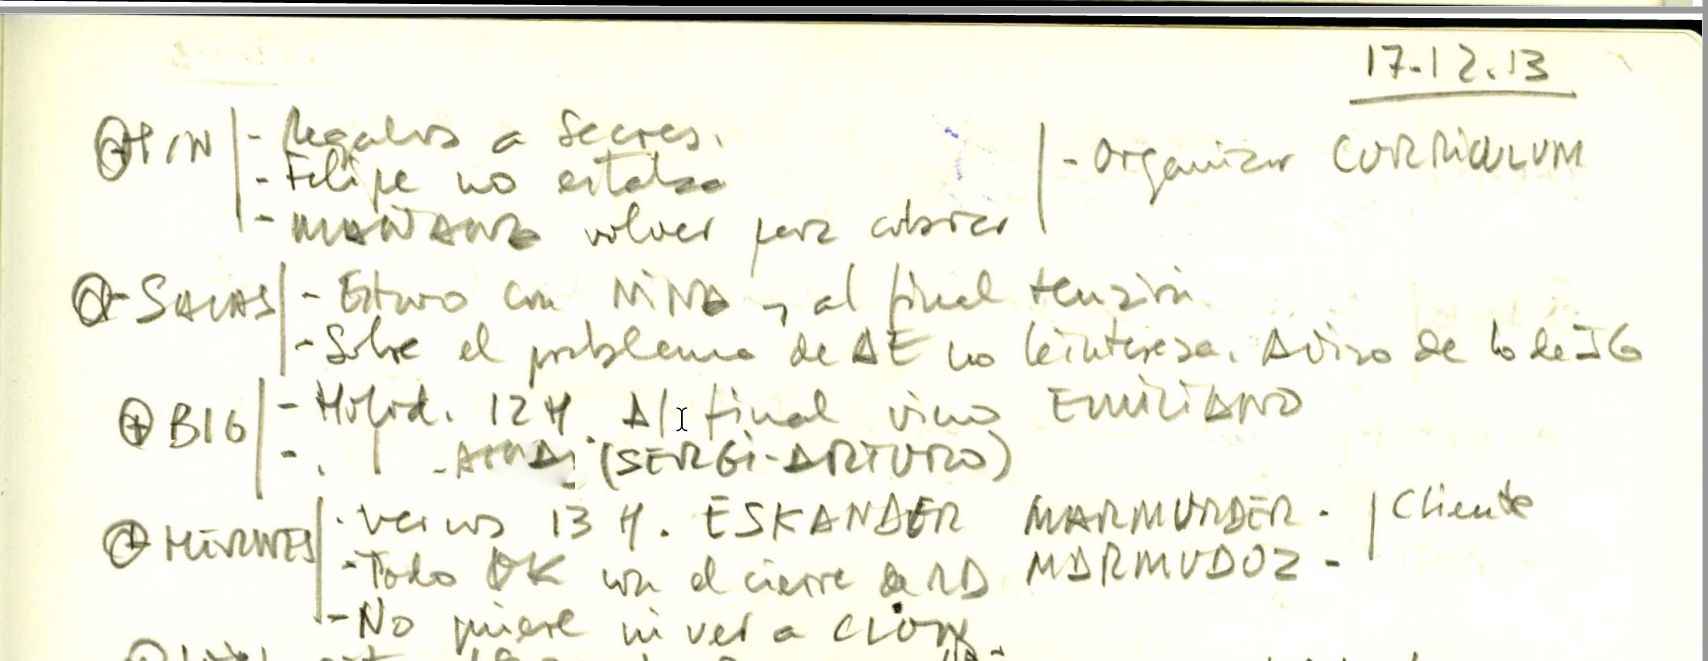 17.12.13
- Regalos a Secres.
- Felipe no estaba
- MAÑANA volver para cobrar
- Organizar CURRICULUM
- SALAS - Estuvo con NINA y al final tensión
- Sobre el problema de AE no le interesa. Aviso de lo de JG
BIG - Holid. 12 H Al final vino EMILIANO
- (SERGI-ARTURO)
vernos 13 H. ESKANDER MARMURDER. Cliente
- Todo OK con el cierre de MARMUDOZ -
- No quiere ni ver a